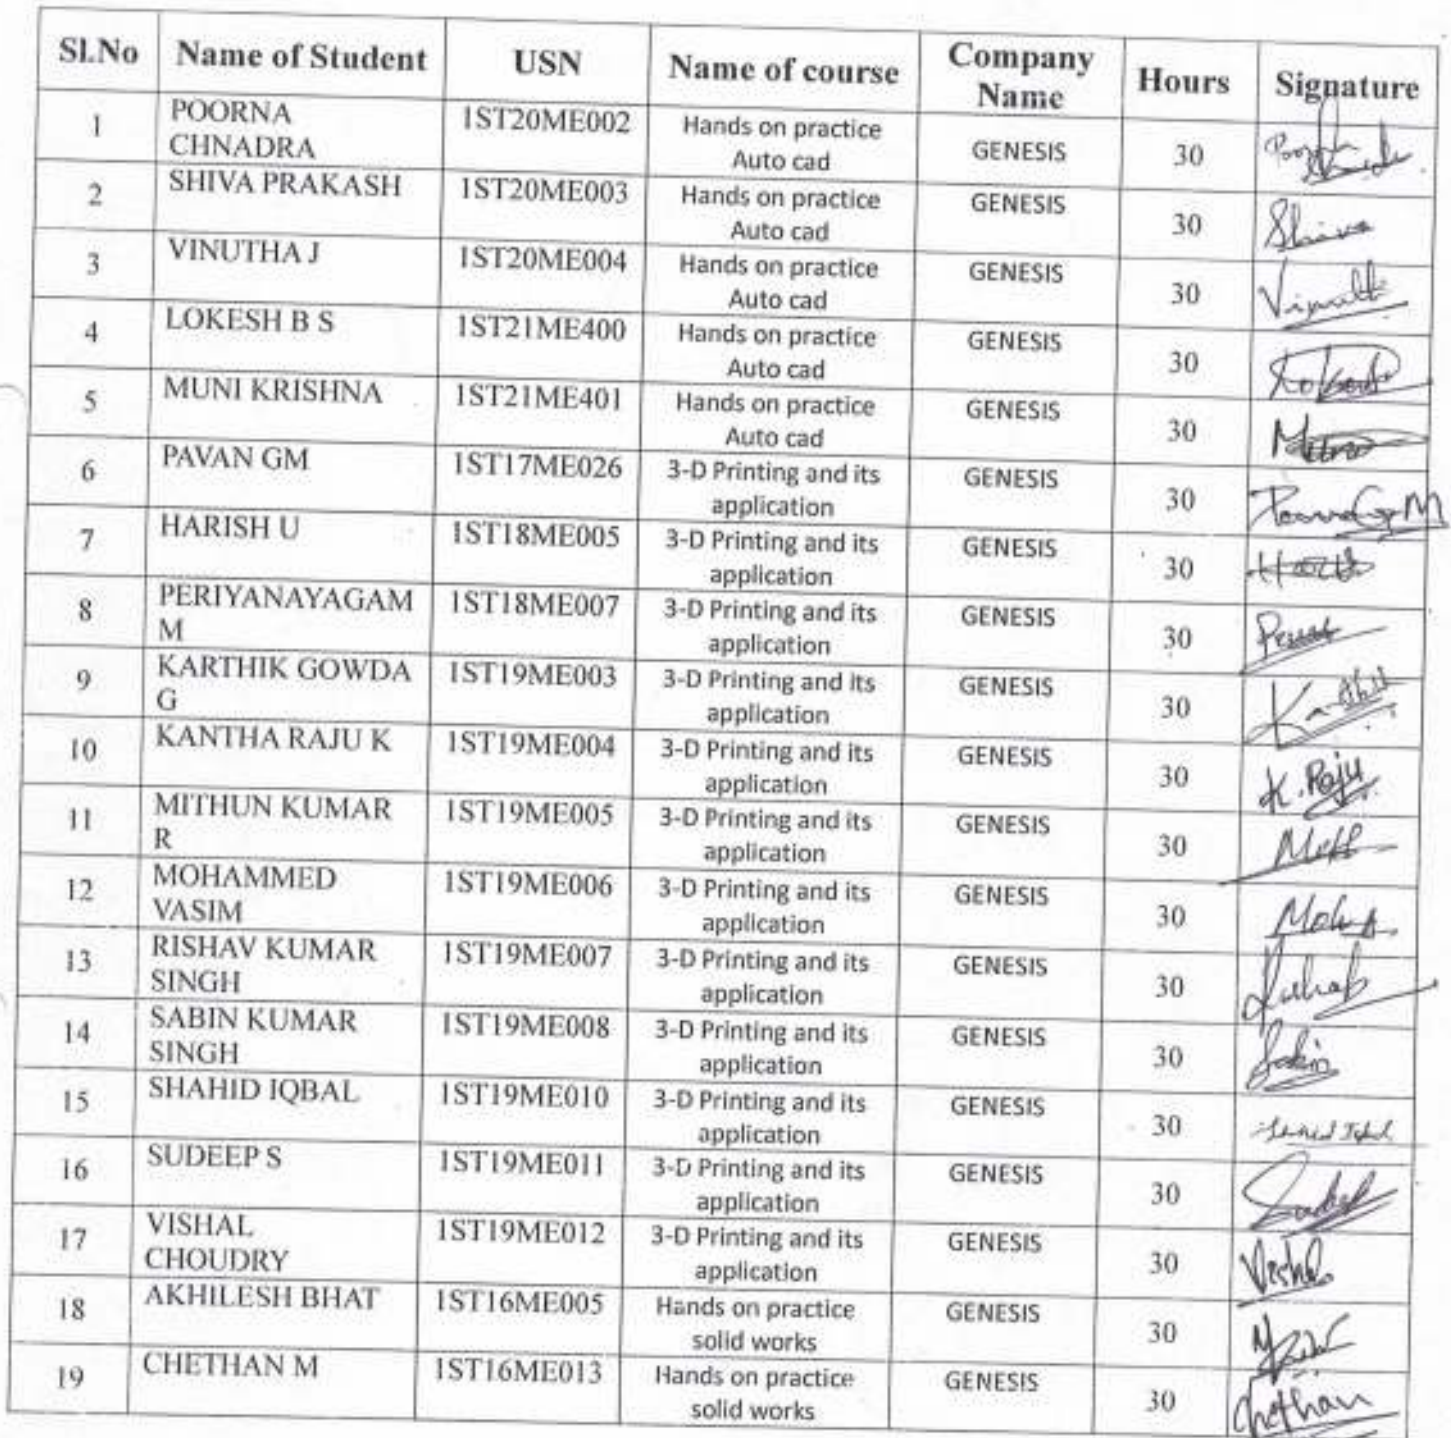 Sl.No Name of Student USN Name of course Company Name Hours Signature
1 POORNA CHNADRA 1ST20ME002 Hands on practice Auto cad GENESIS 30
2 SHIVA PRAKASH 1ST20ME003 Hands on practice Auto cad GENESIS 30 Shiva
3 VINUTHA J 1ST20ME004 Hands on practice Auto cad GENESIS 30
4 LOKESH B S 1ST21ME400 Hands on practice Auto cad GENESIS 30
5 MUNI KRISHNA 1ST21ME401 Hands on practice Auto cad GENESIS 30
6 PAVAN GM 1ST17ME026 3-D Printing and its application GENESIS 30
7 HARISH U 1ST18ME005 3-D Printing and its application GENESIS 30
8 PERIYANAYAGAM M 1ST18ME007 3-D Printing and its application GENESIS 30
9 KARTHIK GOWDA G 1ST19ME003 3-D Printing and its application GENESIS 30
10 KANTHA RAJU K 1ST19ME004 3-D Printing and its application GENESIS 30 K. Raju
11 MITHUN KUMAR R 1ST19ME005 3-D Printing and its application GENESIS 30
12 MOHAMMED VASIM 1ST19ME006 3-D Printing and its application GENESIS 30
13 RISHAV KUMAR SINGH 1ST19ME007 3-D Printing and its application GENESIS 30
14 SABIN KUMAR SINGH 1ST19ME008 3-D Printing and its application GENESIS 30
15 SHAHID IQBAL 1ST19ME010 3-D Printing and its application GENESIS 30
16 SUDEEP S 1ST19ME011 3-D Printing and its application GENESIS 30
17 VISHAL CHOUDRY 1ST19ME012 3-D Printing and its application GENESIS 30
18 AKHILESH BHAT 1ST16ME005 Hands on practice solid works GENESIS 30
19 CHETHAN M 1ST16ME013 Hands on practice solid works GENESIS 30 Chethan